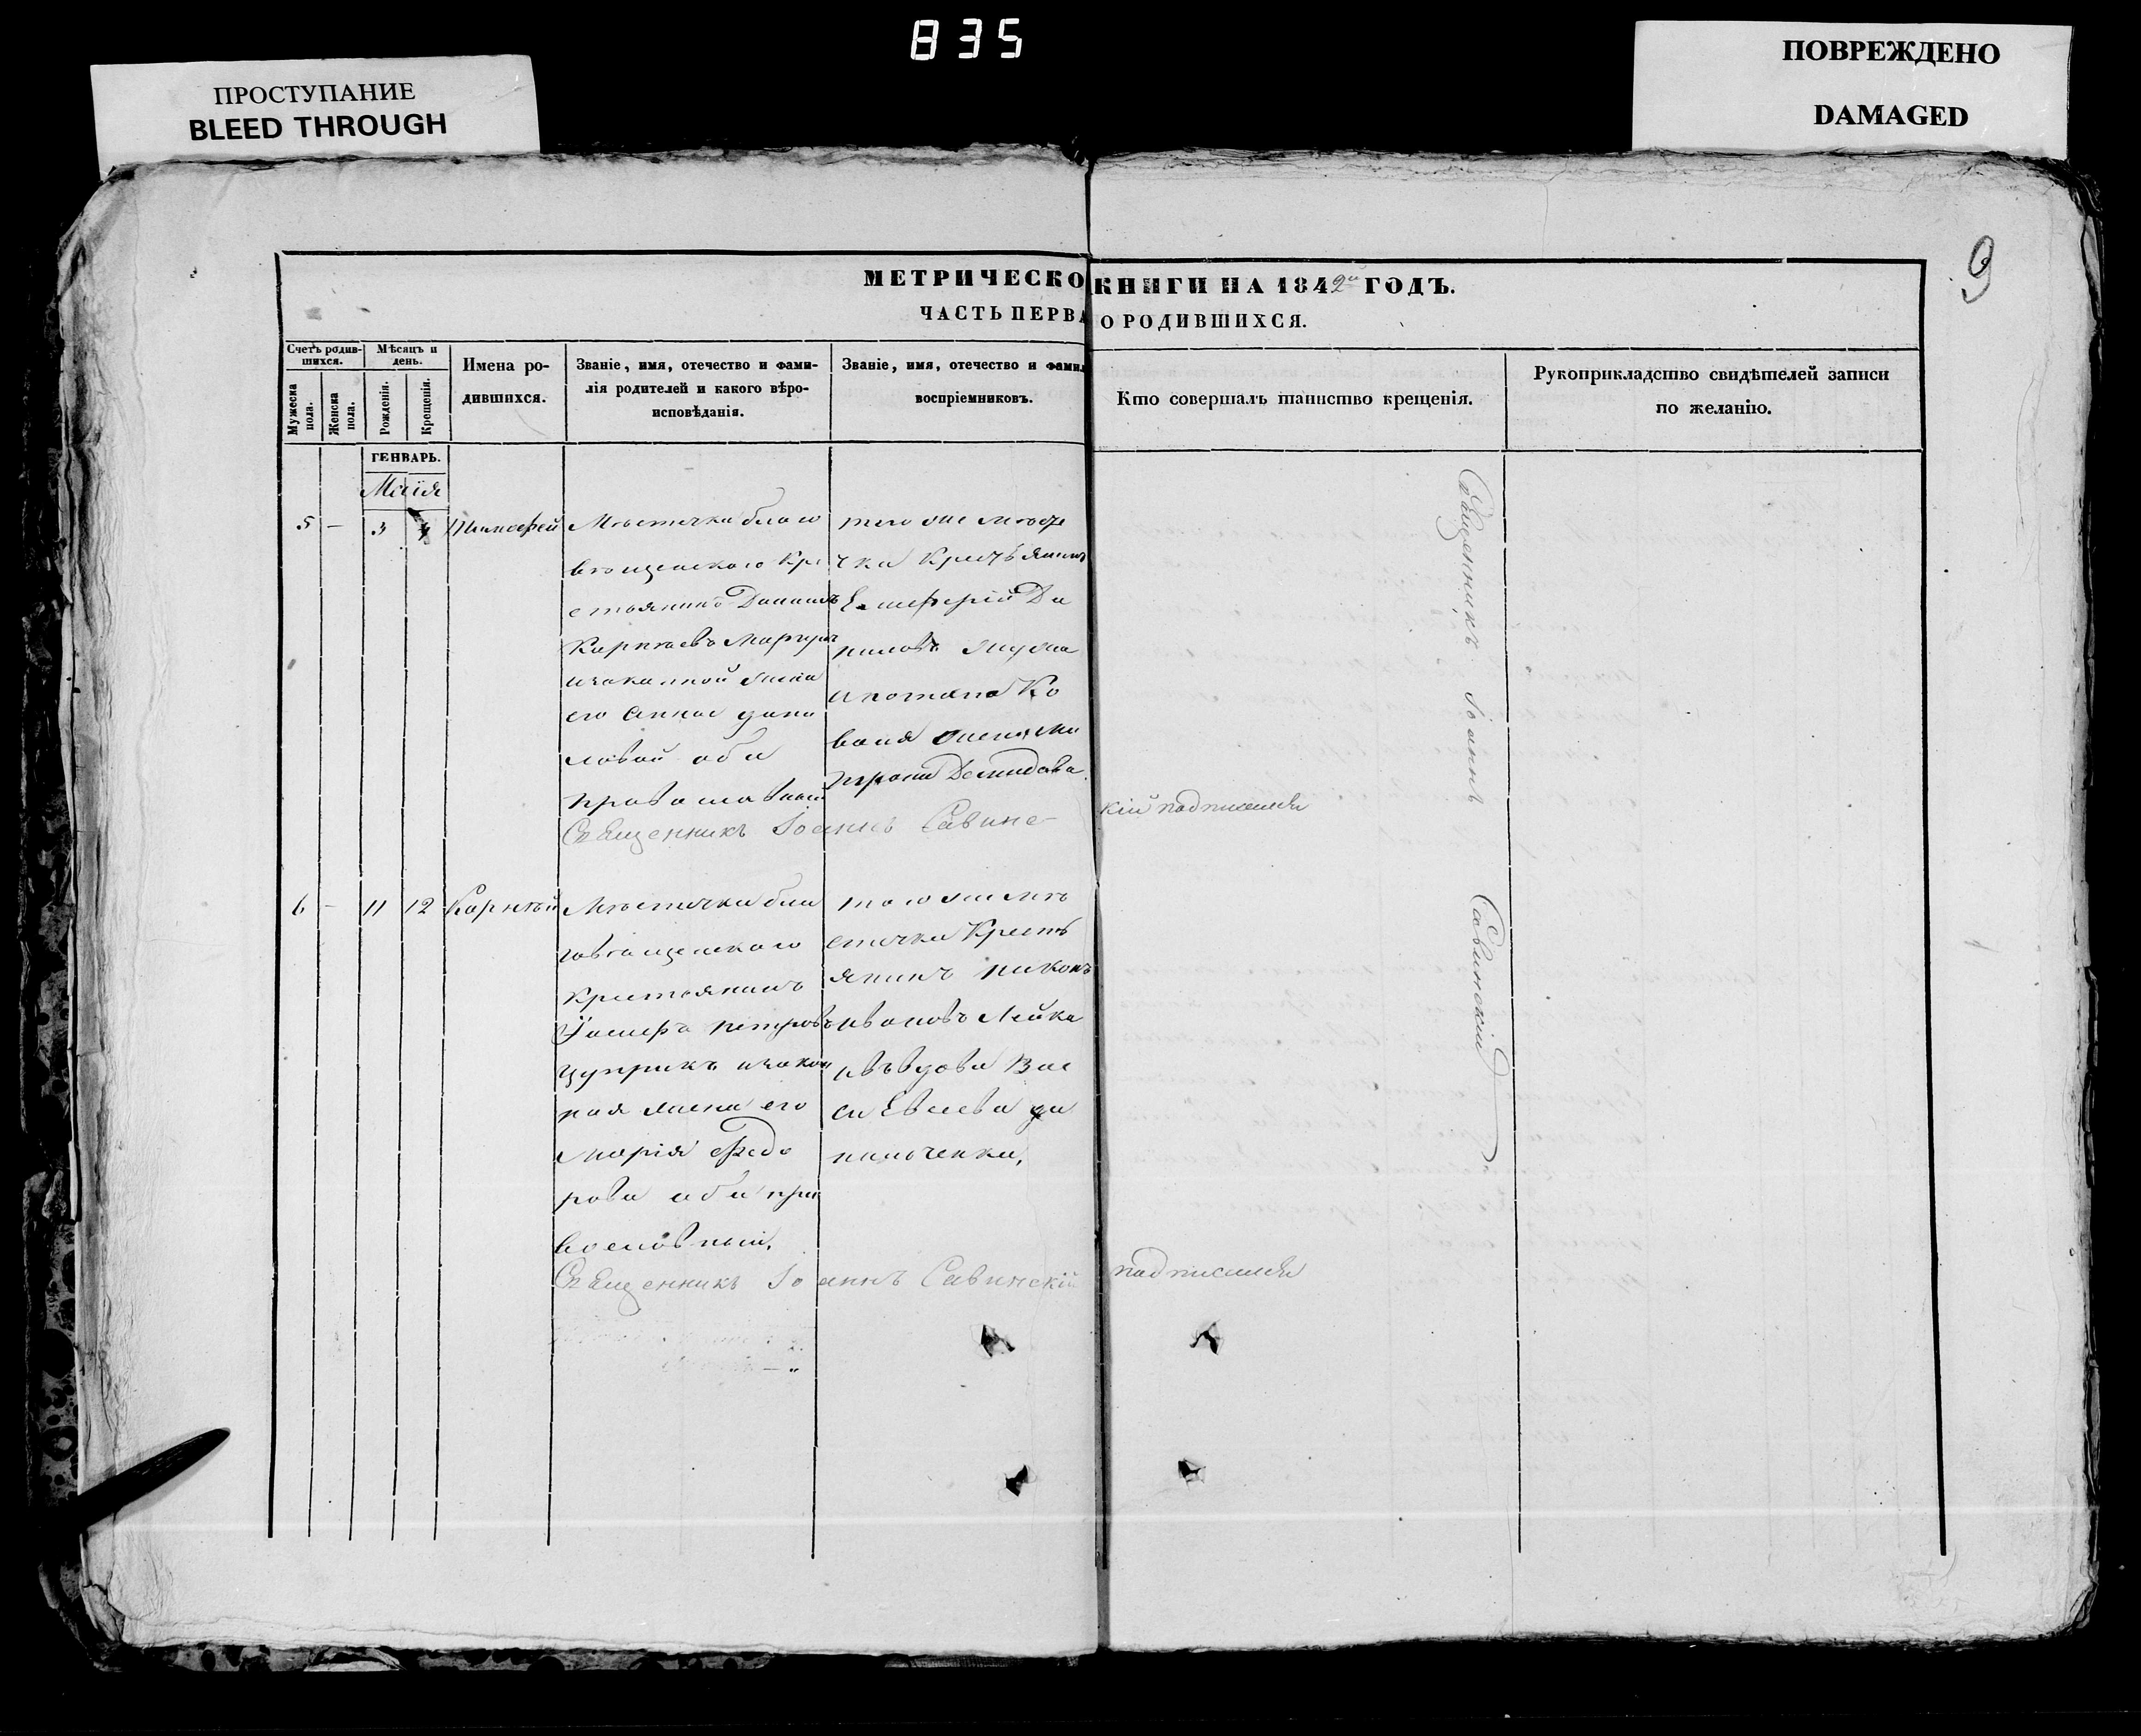 835
ПРОСТУПАНИЕ
BLEED THROUGH
ПОВРЕЖДЕНО
DAMAGED
9
МЕТРИЧЕСКО КНИГИ НА 1842й ГОДЪ.
ЧАСТЬ ПЕРВА О РОДИВШИХСЯ.
Счетъ родив-
шихся.
Мужеска
пола.
Женска
пола.
Мѣсяцъ и
день.
Рожденія.
Крещенія.
Имена ро-
дившихся.
Званіе, имя, отечество и фами-
лія родителей и какого вѣро-
исповѣданія.
Званіе, имя, отечество и фамил
воспріемниковъ.
Кто совершалъ таинство крещенія.
Рукоприкладство свидѣтелей записи
по желанію.
ГЕНВАРЬ.
Маія
5 — 3 4 Тимофей
Мѣстечка Благо
вѣщенского Кре
стьянинъ Даниилъ
Карпѣевъ
изаконной жены
его Анны Дани
ловой оба
православный
тогоже мѣсте
чка Крестьянинъ
Елиферій Да
ниловъ
Ко
валя жена Ма
трона Демидова.
Священникъ Іоаннъ Савинс-
кій подписался
6 — 11 12 Корнѣй
Мѣстечка Бла
говѣщенского
Крестьянинъ
Іосифъ Петровъ
Цуприкъ изакон
ная жена его
Марія Федо
рова оба пра
вославный,
тогоже мѣ
стечка Кресть
янинъ Никонъ
Ивановъ Лейка
ивъдова Вас
са Евсеева Да
нильченка,
Священникъ Іоаннъ Савинскій подписался
Священникъ Іоаннъ Савинскій